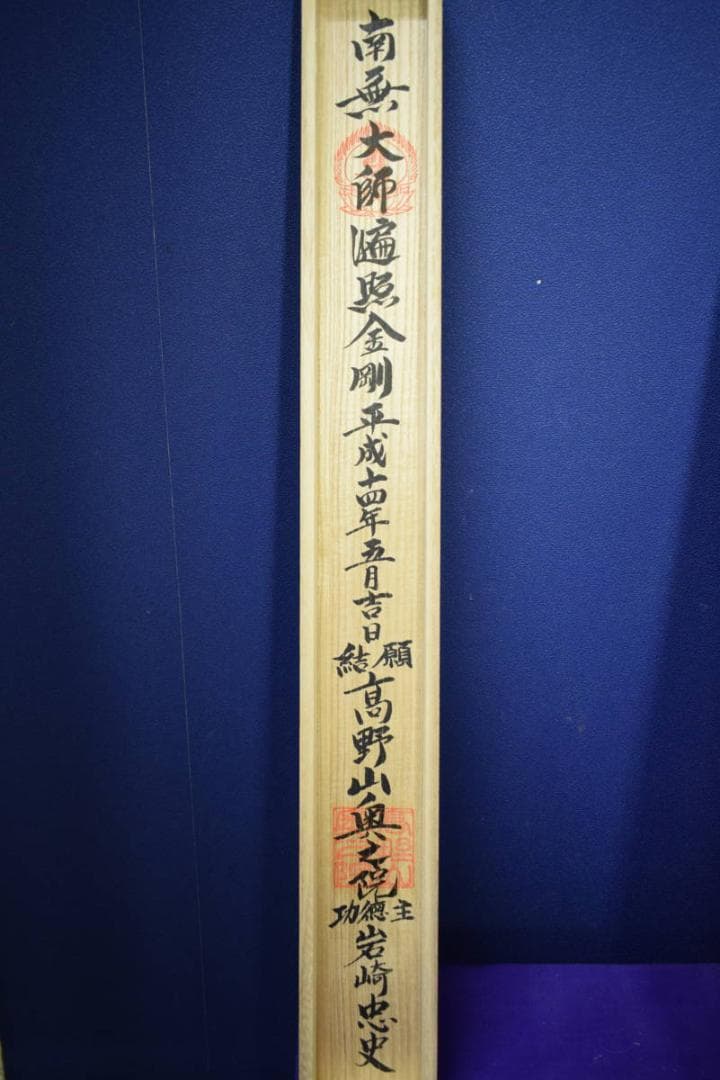 南無大師遍照金剛平成十四年五月吉日
結願
高野山奥之院
功徳主
岩崎忠史